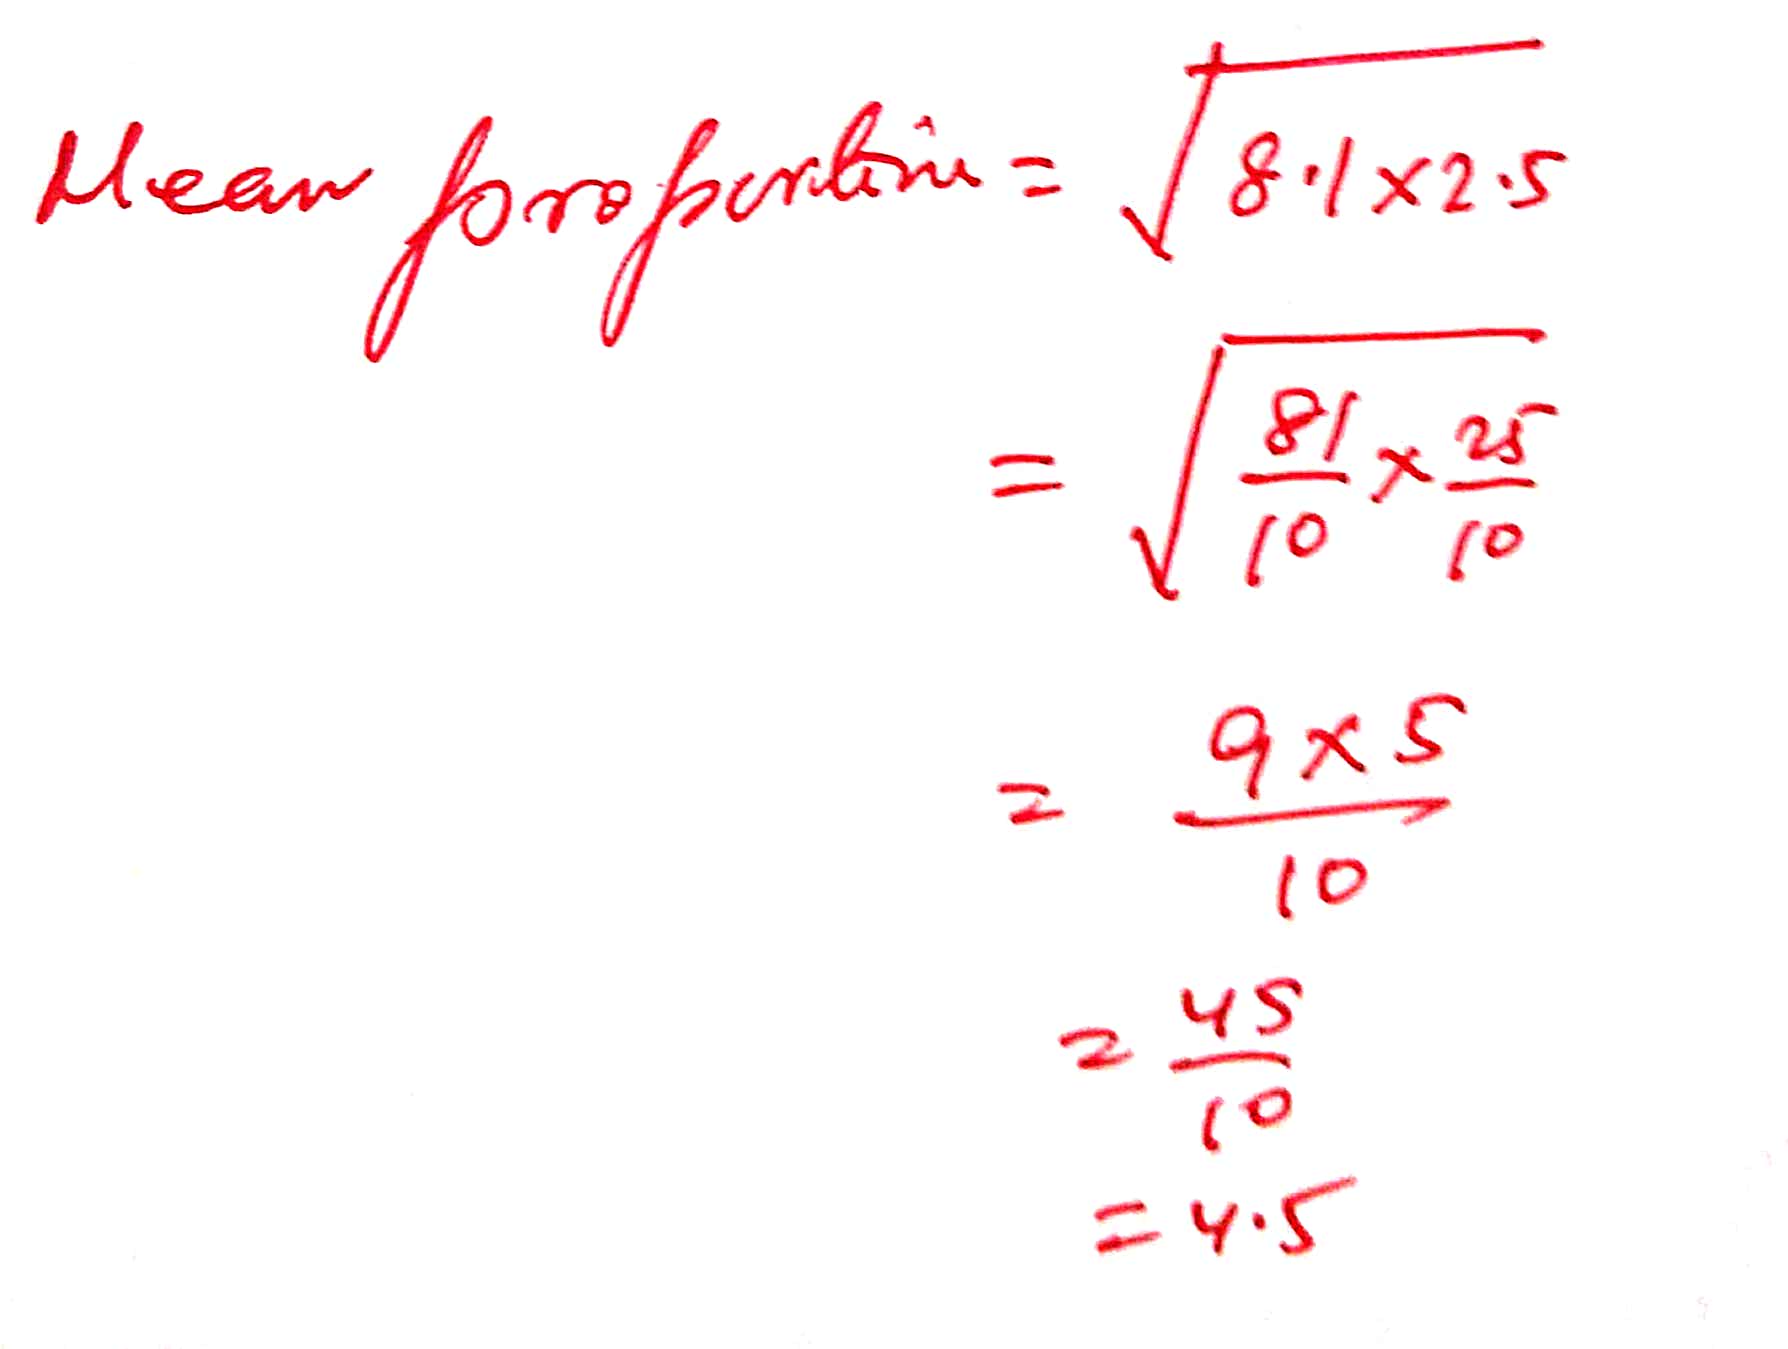 Mean proportion = √(8.1×2.5)
= √(81/10 × 25/10)
= (9×5)/10
= 45/10
= 4.5